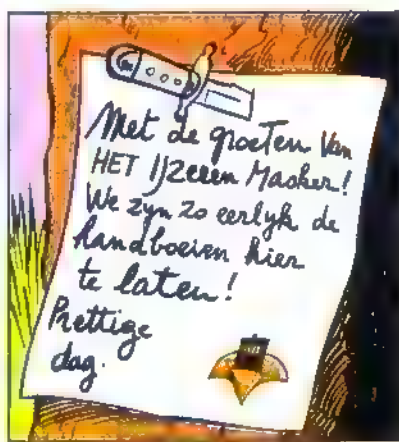 Met de groeten Van
HET IJzeren Masker!
We zyn zo eerlyk de
handboeien hier
te laten!
Prettige
dag.